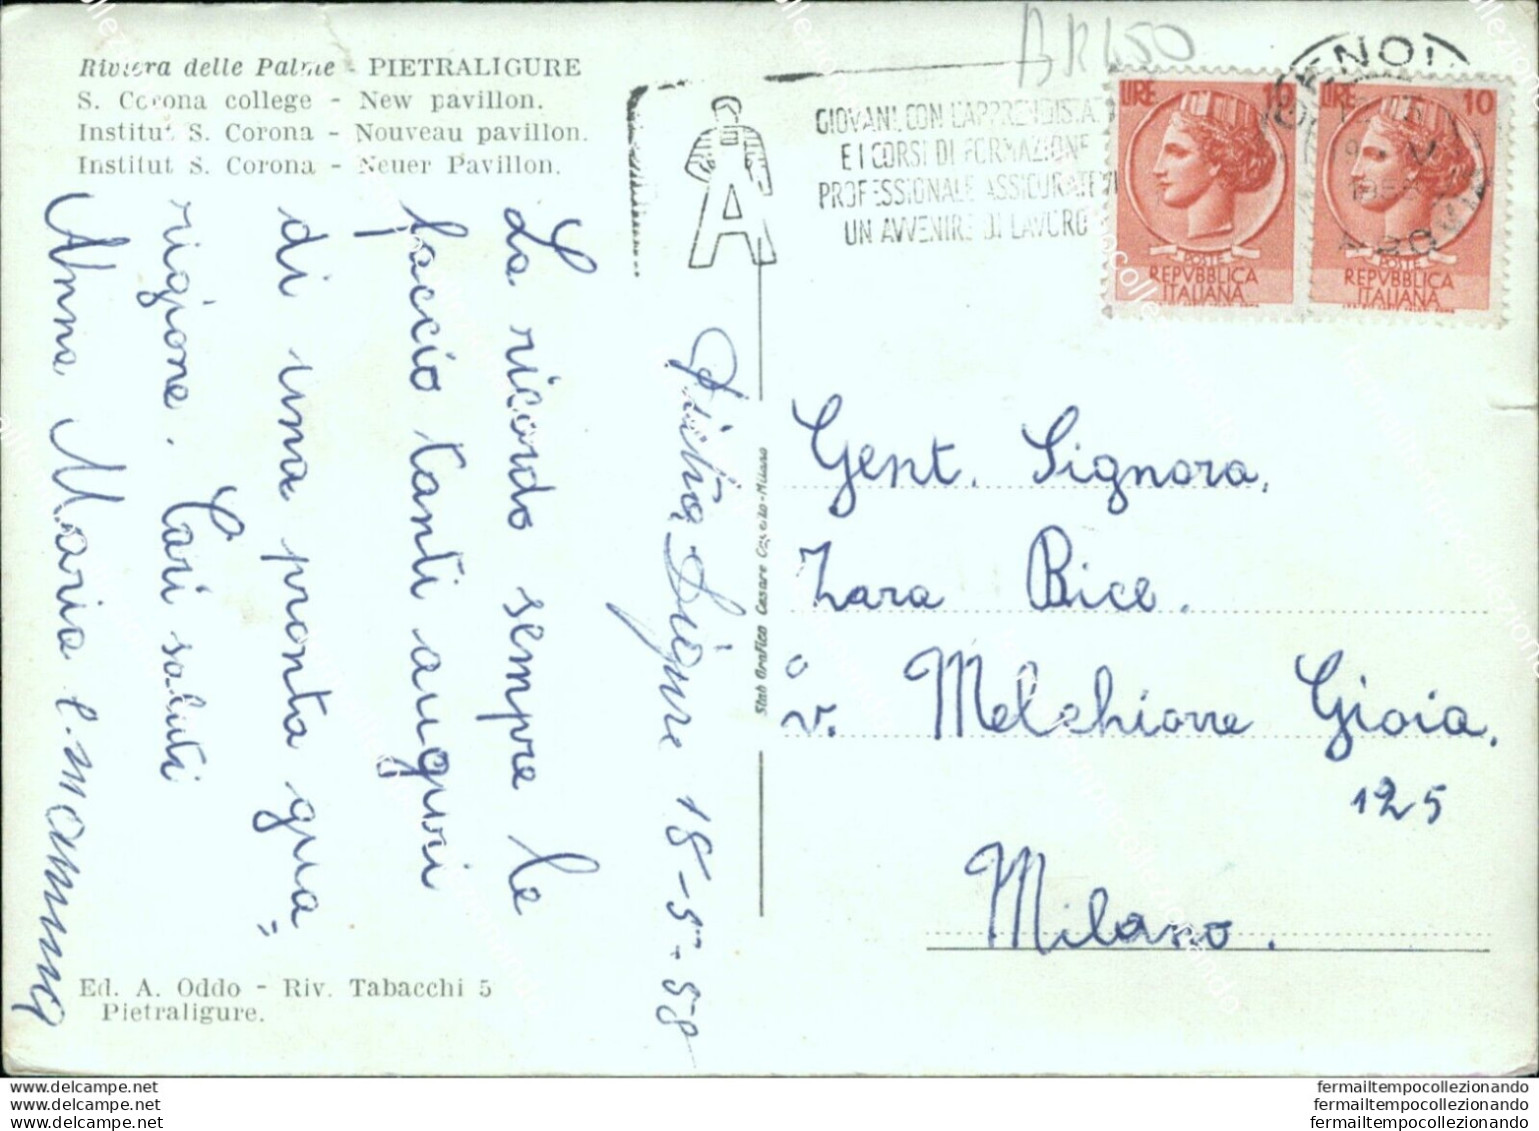 Riviera delle Palme - PIETRALIGURE
S. Corona college - New pavillon.
Institut S. Corona - Nouveau pavillon.
Institut S. Corona - Neuer Pavillon.
BR450
GIOVANI, CON L'APPRENDISTATO
E I CORSI DI FORMAZIONE
PROFESSIONALE ASSICURATEVI
UN AVVENIRE DI LAVORO
A
GENOVA
LIRE 10
POSTE
REPVBBLICA
ITALIANA
LIRE 10
POSTE
REPVBBLICA
ITALIANA
Pietra Ligure 18-5-58
La ricordo sempre le
faccio tanti auguri
di una pronta gua=
rigione. Cari saluti
Anna Maria e mamma
Gent. Signora,
Zara Bice.
v. Melchiorre Gioia,
125
Milano.
Stab Grafico Cesare Capello-Milano
Ed. A. Oddo - Riv. Tabacchi 5
Pietraligure.
www.delcampe.net
www.delcampe.net
www.delcampe.net
fermailtempocollezionando
fermailtempocollezionando
fermailtempocollezionando